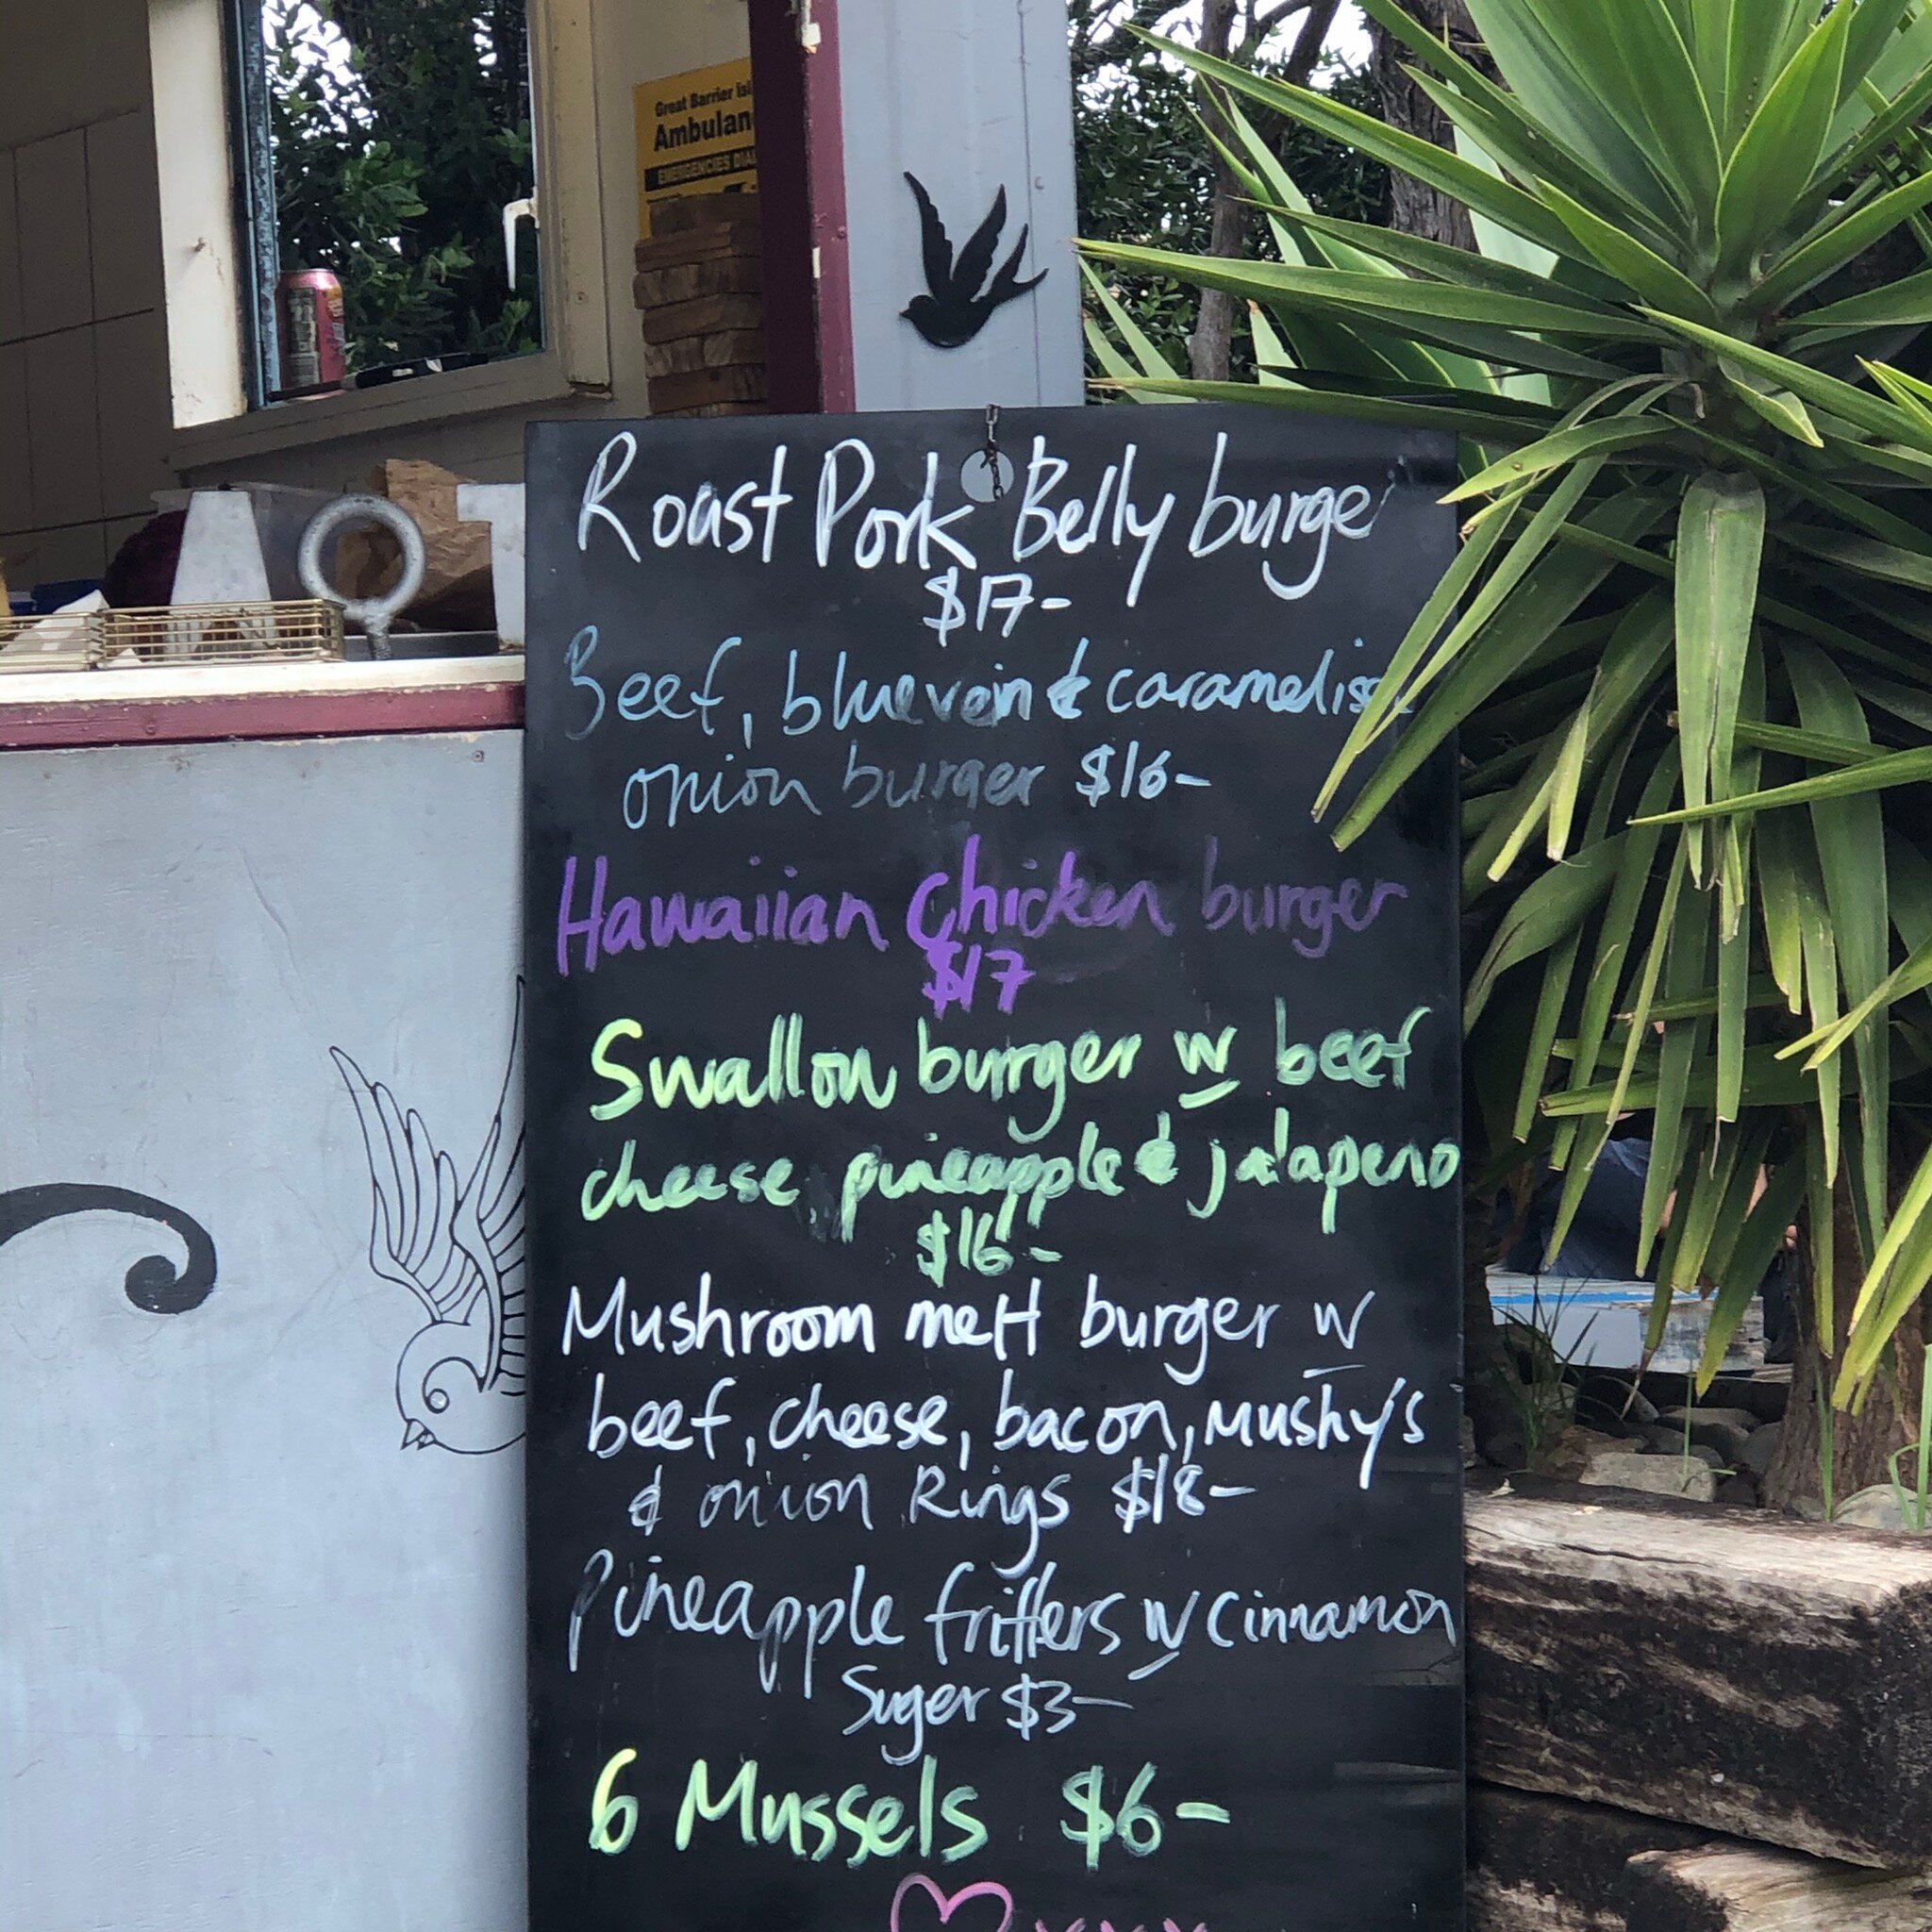 Great Barrier Isl
Ambulan
EMERGENCIES DIAL
Roast Pork Belly burge
$17-
Beef, bluevein & caramelise
onion burger $16-
Hawaiian chicken burger
$17
Swallow burger w beef
cheese, pineapple & jalapeno
$16-
Mushroom melt burger w
beef, cheese, bacon, Mushy's
& onion Rings $18-
Pineapple fritters w cinnamon
Suger $3-
6 Mussels $6-
xxx